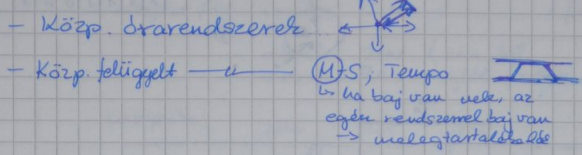 - Közp. órarendszerek
- Közp. felügyelt —〃— M-S, Tempo
↳ ha baj van vele, az
egész rendszerrel baj van
→ melegtartalékolás